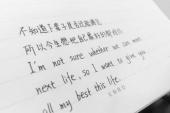 不知道下辈子是否还能遇见
所以今生想把最好的都给你
I'm not sure whether we can meet
next life, so I want to give you
all my best this life.